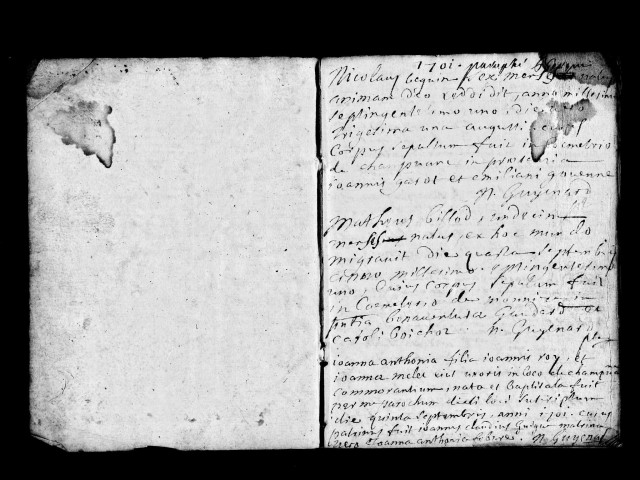 1701. paraphé
Nicolaus beguin ex mense
animam deo reddidit, anno millesimo
septingentesimo uno, die
trigesima una augusti, cuius
corpus sepultum fuit in coemeterio
de champvane in praesentia
ioannis garot et emiliani
N. Guyenard
Matheus billod, undecim
menses natus, ex hoc mundo
migravit die quarta septembris
anno millesimo septingentesimo
uno, cuius corpus sepultum fuit
in Coemeterio de monniere in
pntia bonaventura Guedard et
caroli boichoz. N. Guyenard
ioanna anthonia filia ioannis roy, et
ioannae uxoris in loco de champvane
commorantium, nata et baptisata fuit
per me parochum dicti loci subscriptum
die quinta septembris, anni 1701. cuius
patrinus fuit ioannes claudius matrina
vero ioanna anthonia N. Guyenard